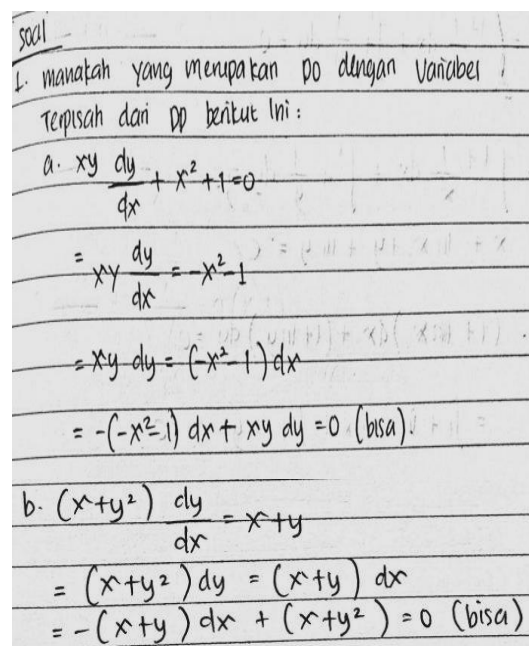 soal
1. manakah yang merupakan PD dengan Variabel
Terpisah dari PD berikut Ini :
a. xy dy/dx + x² + 1 = 0
= xy dy/dx = -x² - 1
= xy dy = (-x² - 1) dx
= -(-x² - 1) dx + xy dy = 0 (bisa)
b. (x + y²) dy/dx = x + y
= (x + y²) dy = (x + y) dx
= -(x + y) dx + (x + y²) = 0 (bisa)